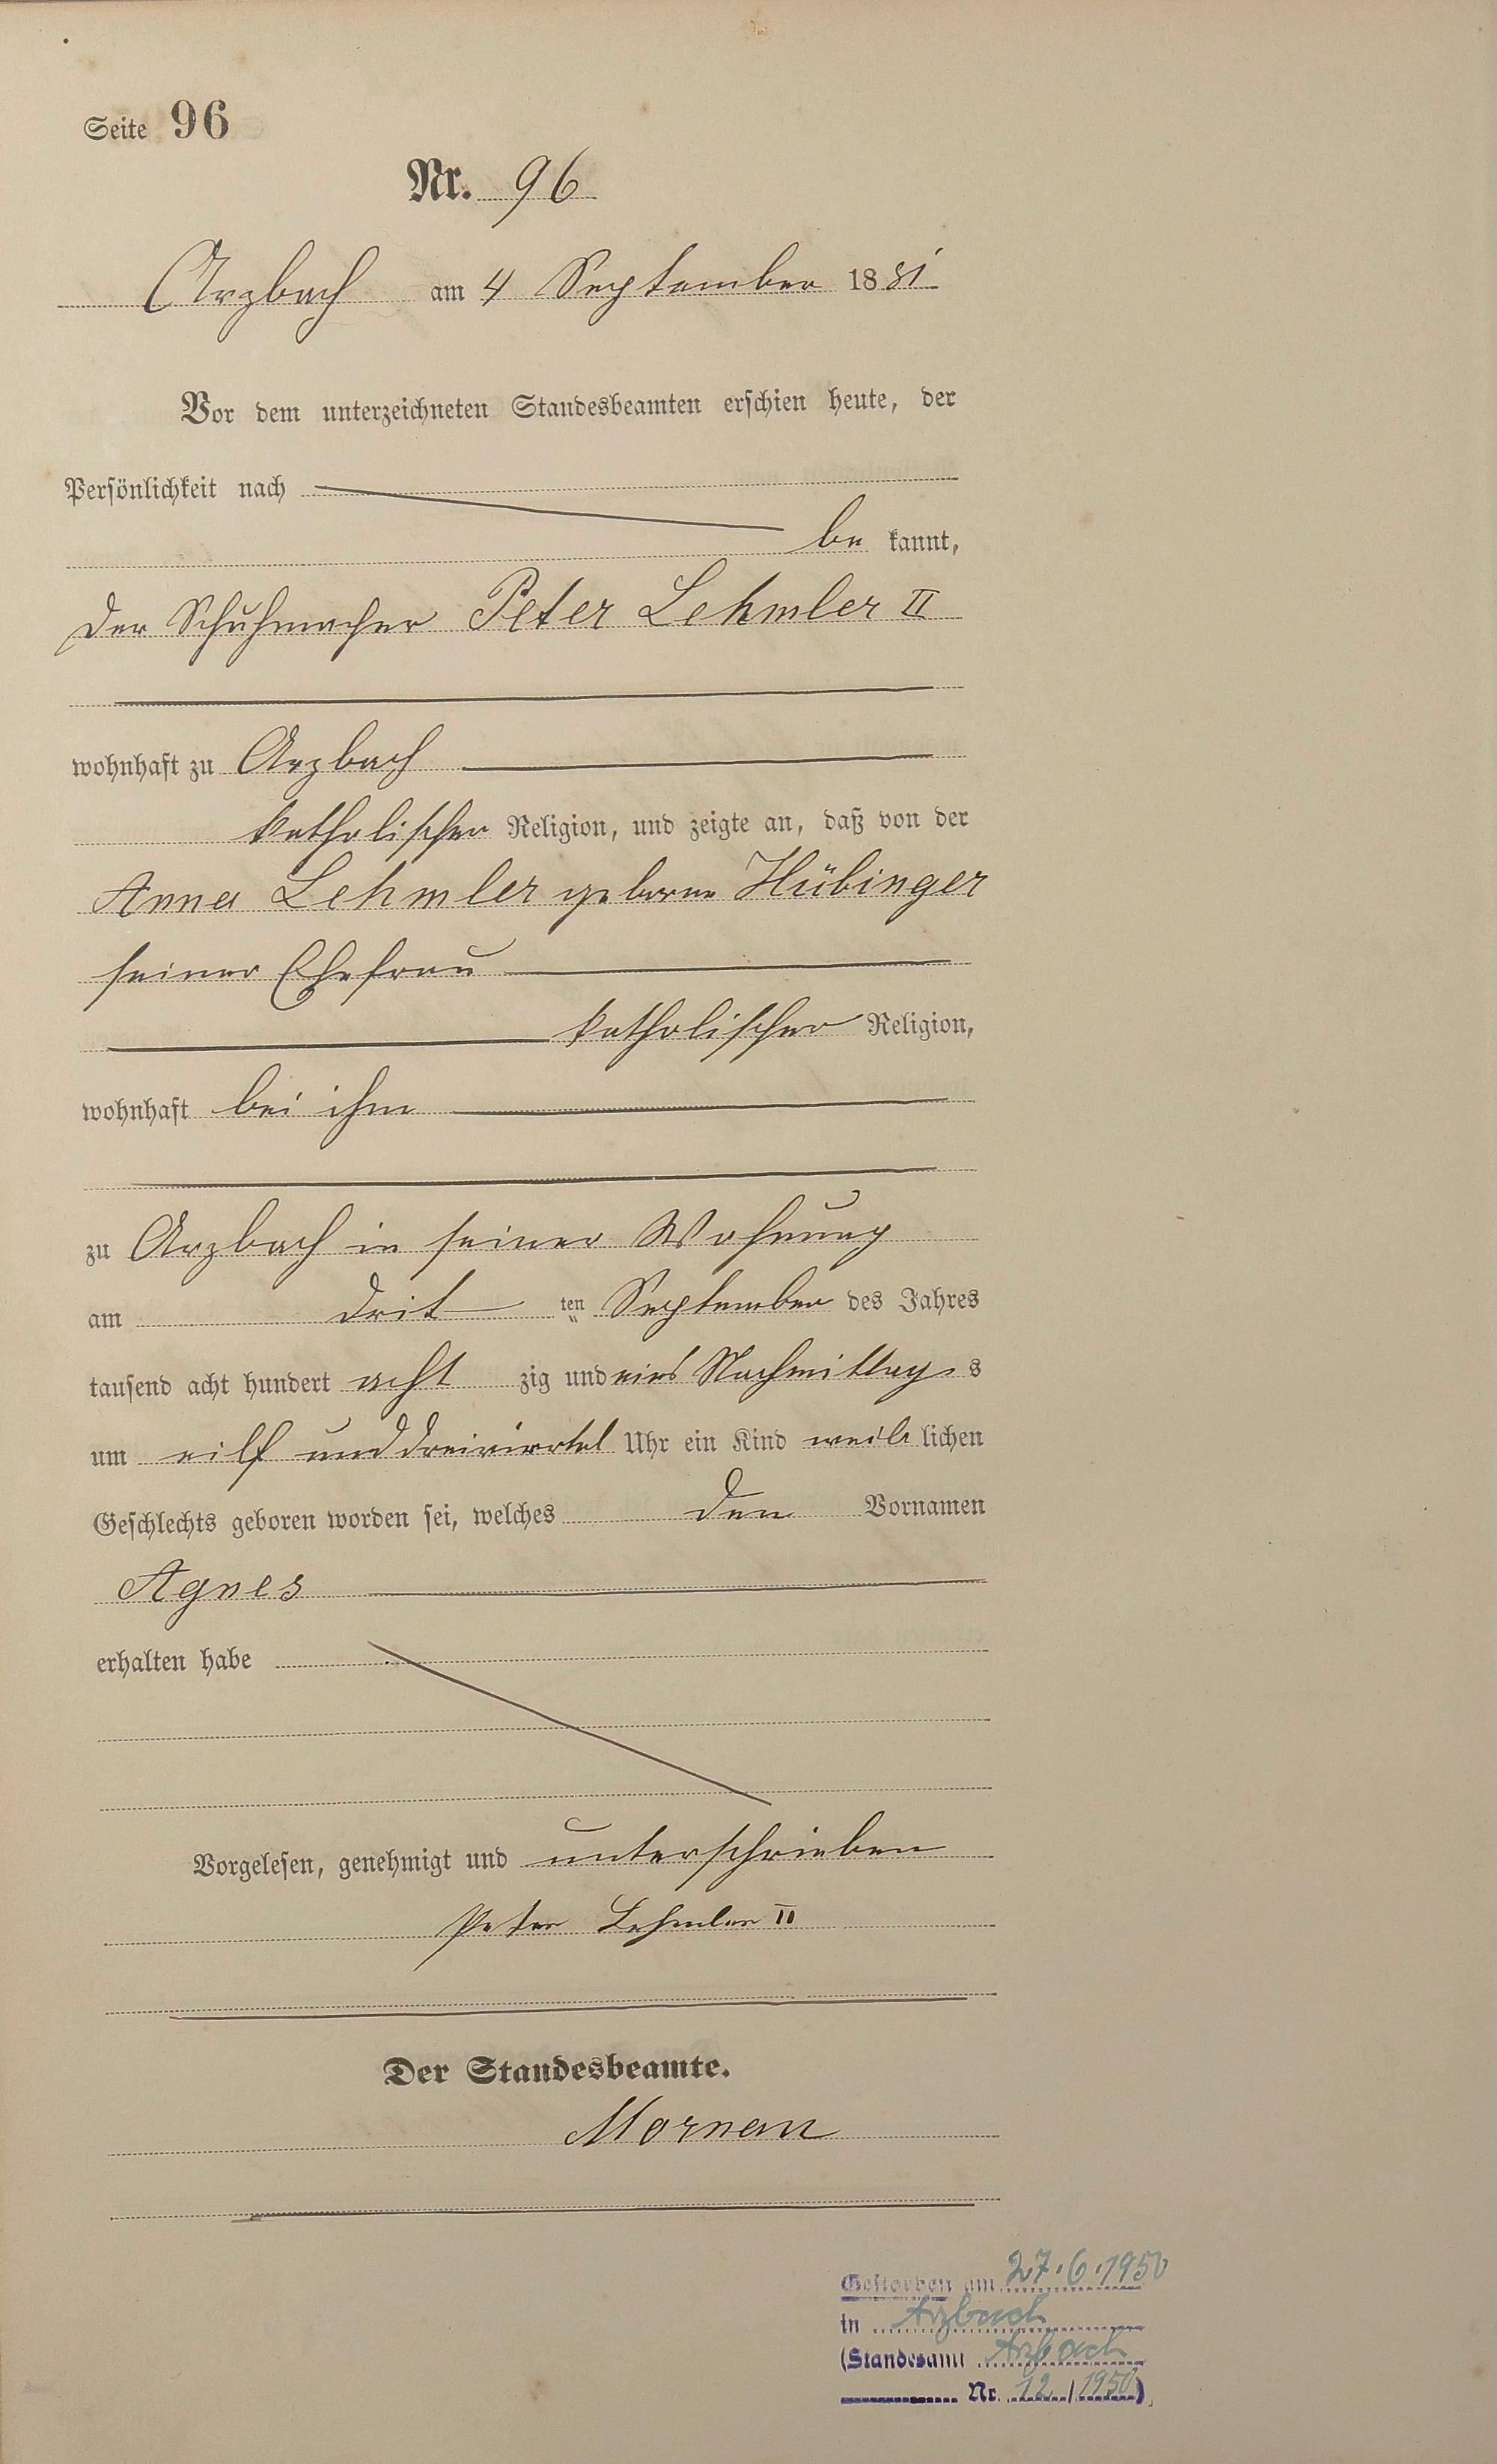 Seite 96
Nr. 96
Arzbach am 4 September 1881
Vor dem unterzeichneten Standesbeamten erschien heute, der
Persönlichkeit nach
be kannt,
der Schuhmacher Peter Lehmler II
wohnhaft zu Arzbach
katholischer Religion, und zeigte an, daß von der
Anna Lehmler geborne Hübinger
seiner Ehefrau
katholischer Religion,
wohnhaft bei ihm
zu Arzbach in seiner Wohnung
am drit ten September des Jahres
tausend acht hundert acht zig und eins Nachmittag s
um eilf und dreiviertel Uhr ein Kind weib lichen
Geschlechts geboren worden sei, welches den Vornamen
Agnes
erhalten habe
Vorgelesen, genehmigt und unterschrieben
Peter Lehmler II
Der Standesbeamte.
Gestorben am 27.6.1950
in Arzbach
(Standesamt Arzbach
Nr. 12/1950)